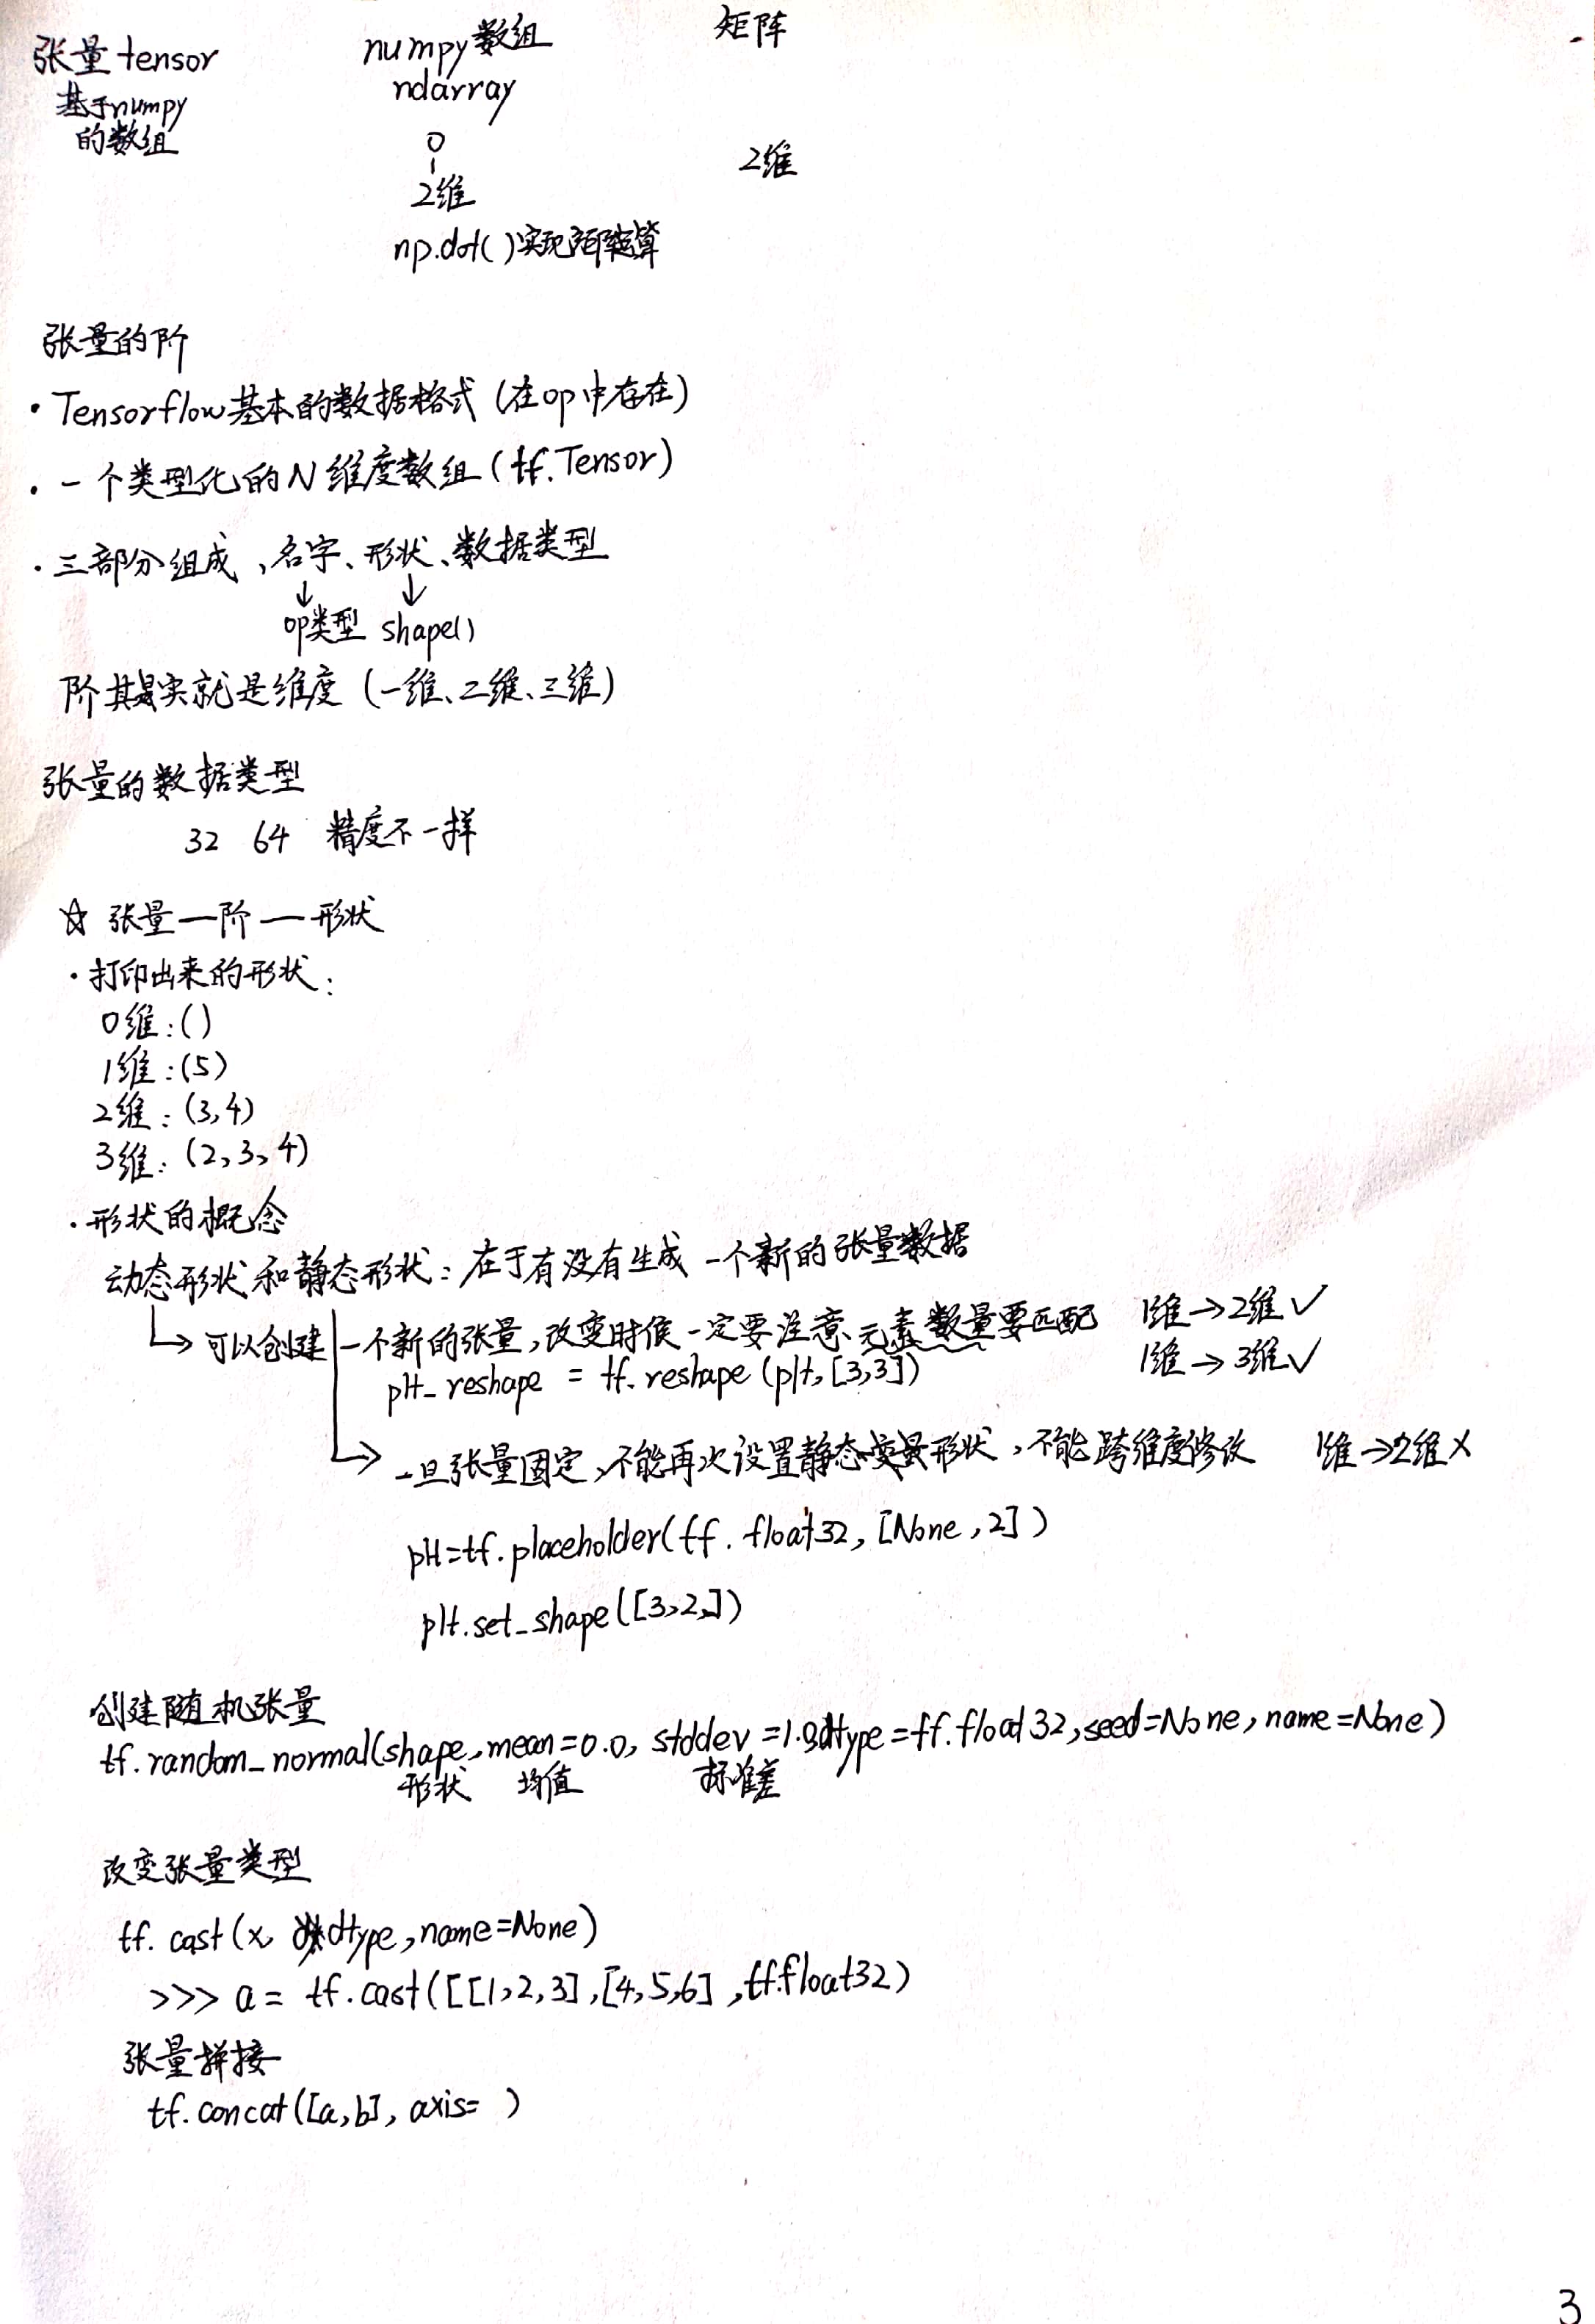 张量 tensor
numpy数组
矩阵
基于numpy
的数组
ndarray
0
1
2维
2维
np.dot()实现矩阵运算
张量的阶
· Tensorflow基本的数据格式 (在op中存在)
· 一个类型化的N维度数组 (tf.Tensor)
· 三部分组成、名字、形状、数据类型
↓ ↓
op类型 shape()
阶其实就是维度 (一维、二维、三维)
张量的数据类型
32 64 精度不一样
☆ 张量—阶—形状
· 打印出来的形状:
0维:()
1维:(5)
2维:(3,4)
3维:(2,3,4)
· 形状的概念
动态形状和静态形状:在于有没有生成一个新的张量数据
↳可以创建一个新的张量,改变时候一定要注意元素数量要匹配 1维→2维✓
plt_reshape = tf.reshape(plt,[3,3]) 1维→3维✓
→一旦张量固定,不能再次设置静态形状,不能跨维度修改 1维→2维×
plt=tf.placeholder(tf.float32,[None,2])
plt.set_shape([3,2,])
创建随机张量
tf.random_normal(shape,mean=0.0, stddev=1.0,dtype=tf.float32,seed=None,name=None)
形状 均值 标准差
改变张量类型
tf.cast(x, dtype,name=None)
>>> a = tf.cast([[1,2,3],[4,5,6],tf.float32)
张量拼接
tf.concat([a,b], axis= )
3